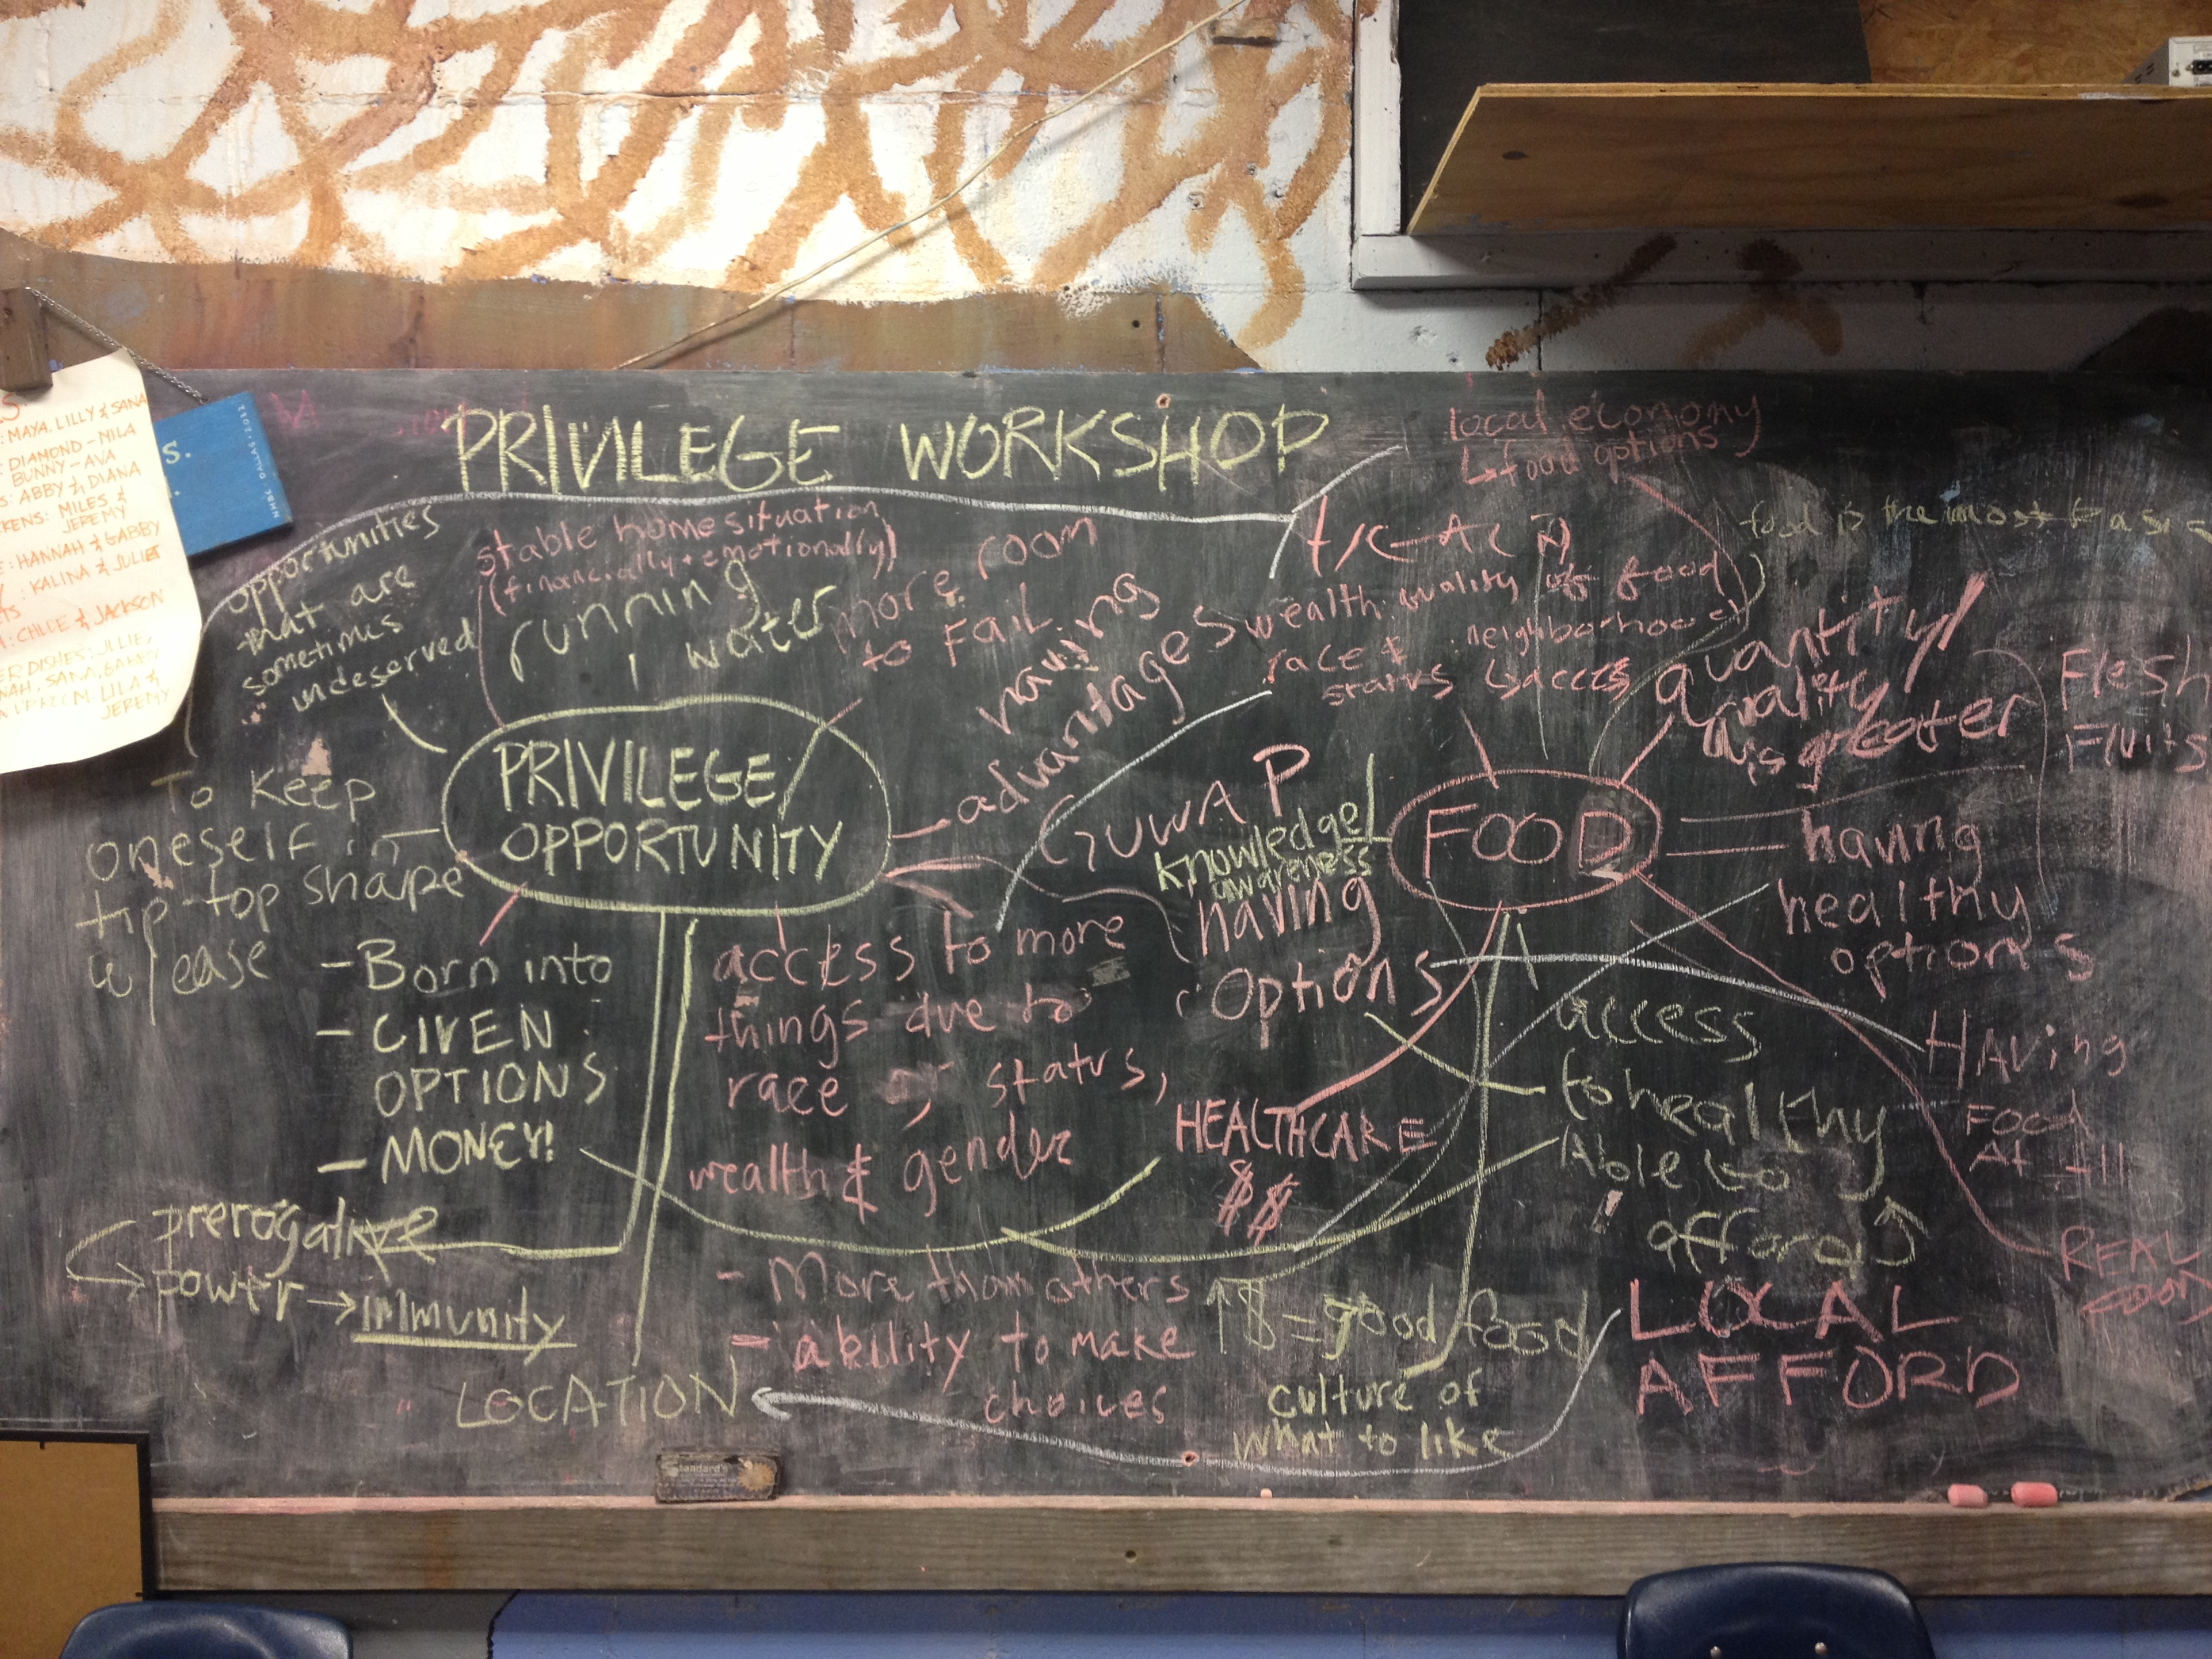 PRIVILEGE WORKSHOP
local economy
↳ food options
food is the most basic
opportunities
that are
sometimes
undeserved
stable home situation
(financially + emotionally)
running
water
more room
to FaiL
having
advantages
wealth: quality of food
race & neighborhood
status ↳ access
quantity/
quality
is greater
Flesh
Fluits
PRIVILEGE
OPPORTUNITY
To Keep
oneself in
tip-top shape
w/ ease
GUWAP
knowledge/
awareness
having
options
FOOD
having
healthy
options
- Born into
- GIVEN
OPTIONS
- MONEY!
access to more
things due to
race or status,
wealth & gender
HEALTHCARE
$$
access
to healthy
Able to
afford
HAving
FOOD
At All
REAL
FOOD
prerogative
power → immunity
LOCATION
- More than others
- ability to make
choices
↑$ = good food
culture of
what to like
LOCAL
AFFORD
: MAYA, LILLY & SANA
: DIAMOND - MILA
BUNNY - AVA
S: ABBY & DIANA
KENS: MILES &
JEREMY
E: HANNAH & GABBY
: KALINA & JULIET
: CHLOE & JACKSON
ER DISHES: JULIE,
NAH, SANA, GABBY
LILA &
JEREMY
S.
NHBC DALLAS • 2012
Standard's